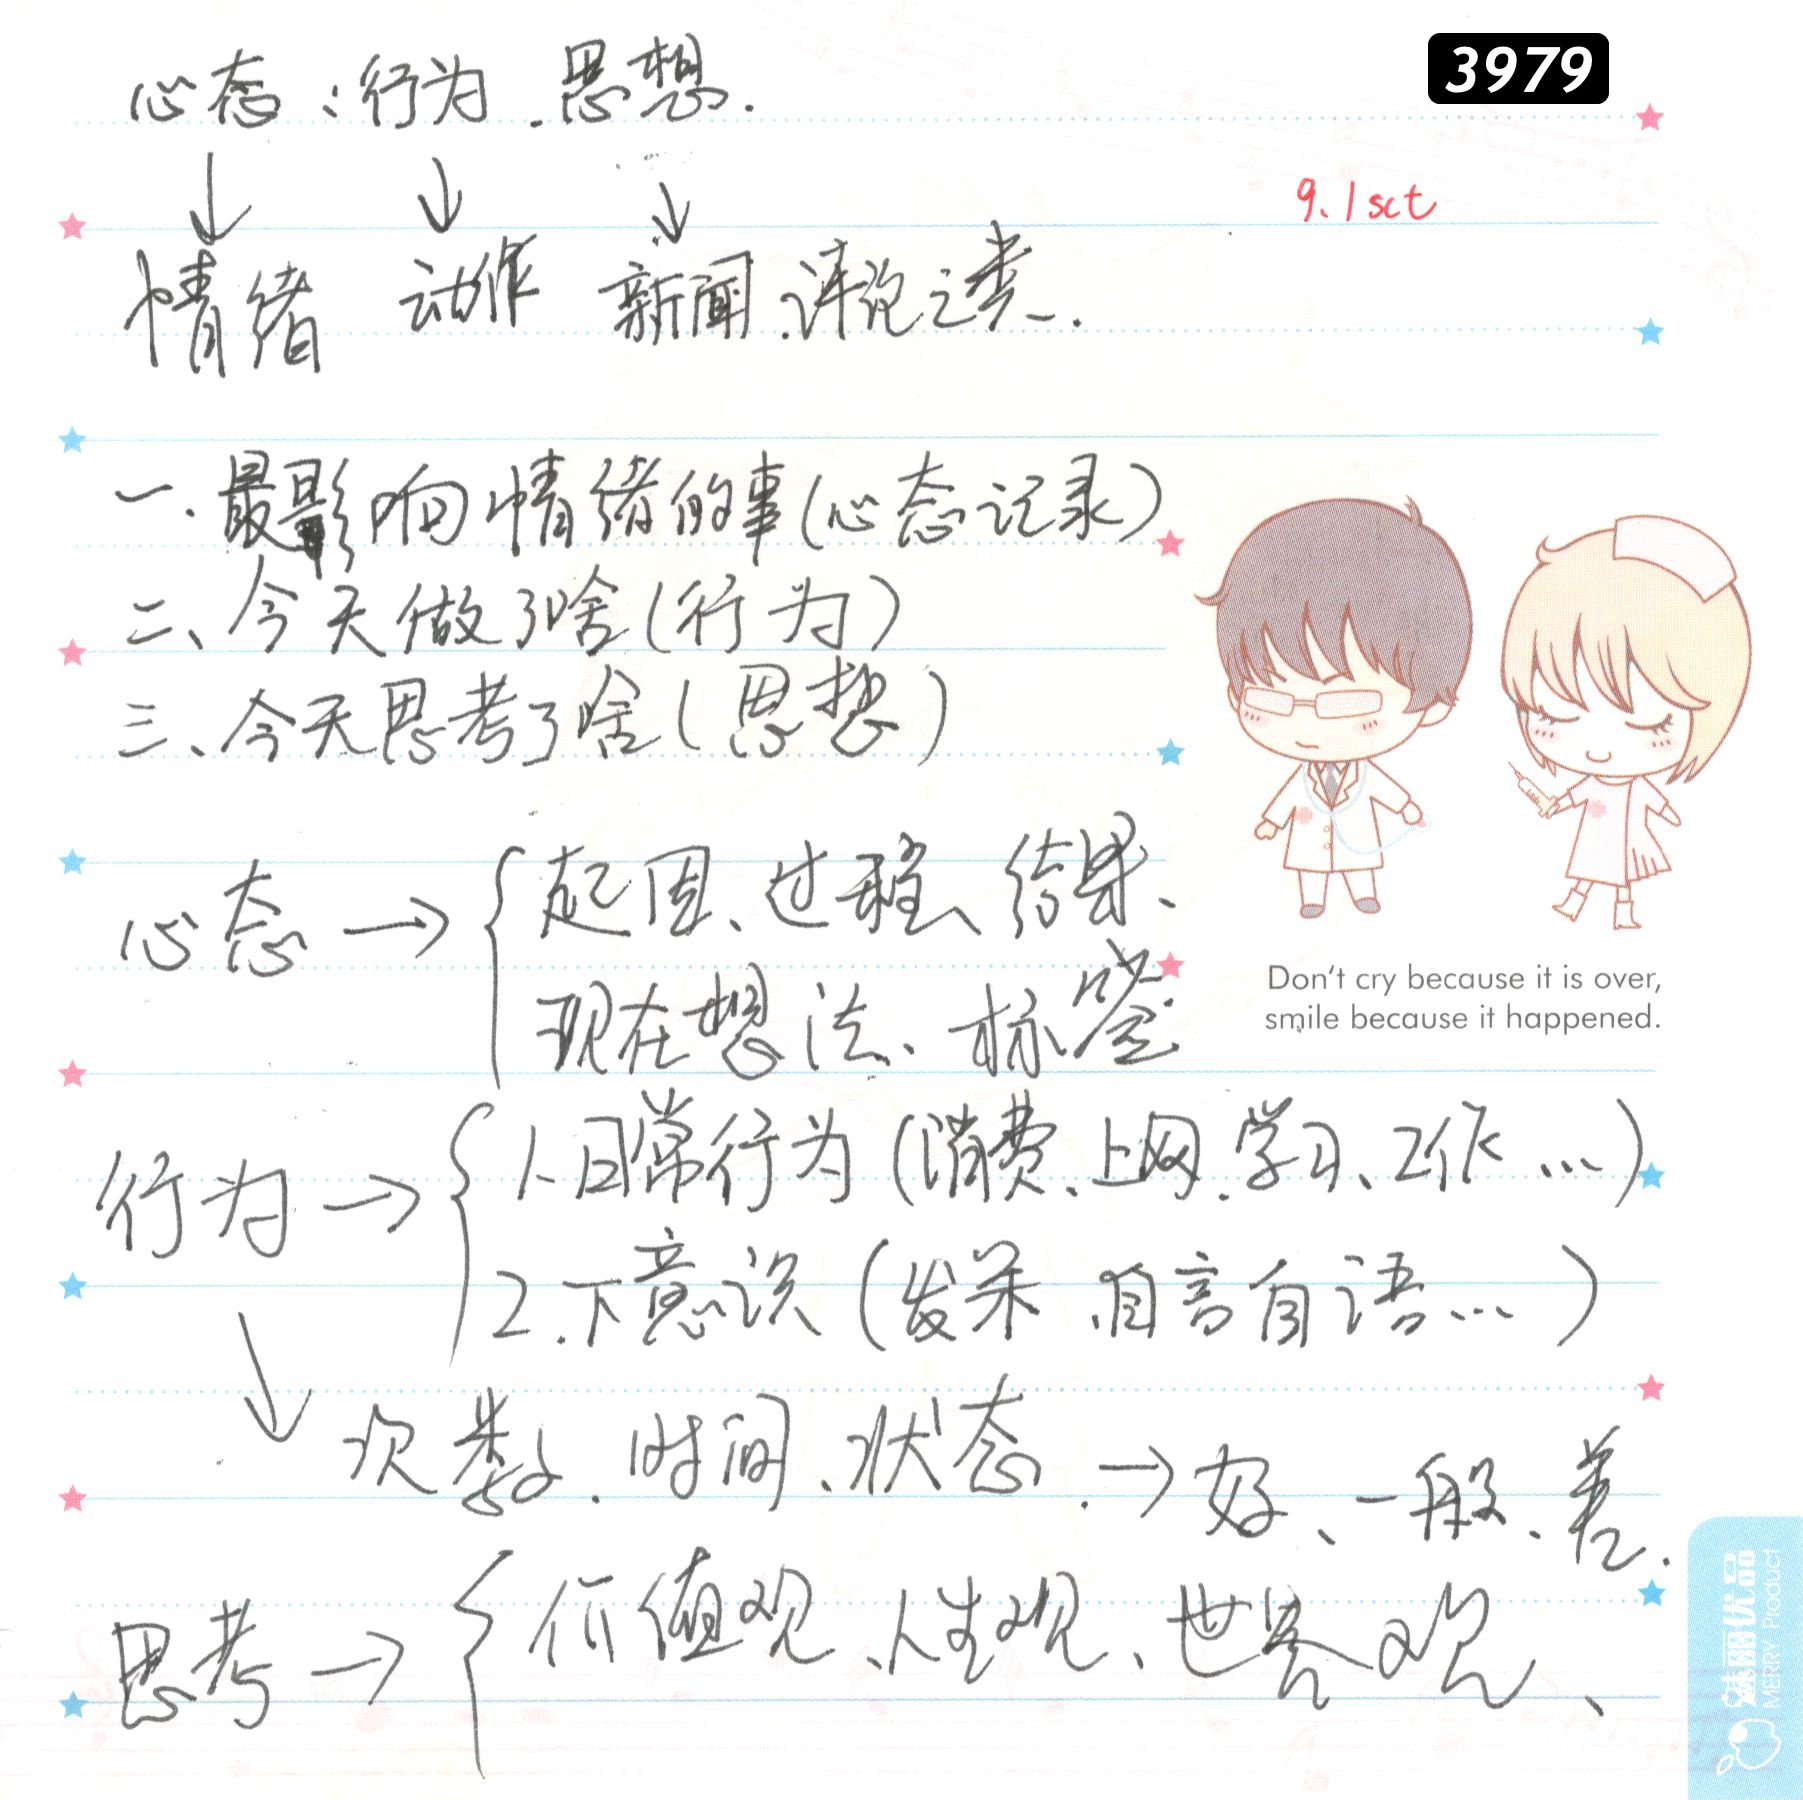 3979
心态:行为.思想.
9.1 sct
↓ ↓ ↓
情绪 动作 新闻.评论之类.
一.最影响情绪的事(心态记录)
二、今天做了啥(行为)
三、今天思考了啥(思想)
心态→{起因、过程、结果、
现在想法、标签
Don't cry because it is over,
smile because it happened.
行为→{1.日常行为(消费、上网.学习、工作...)
2.下意识(发呆.自言自语...)
↓次数.时间、状态.→好、一般、差.
思考→{价值观、人生观、世界观、
魅丽优品
MERRY PRODUCT